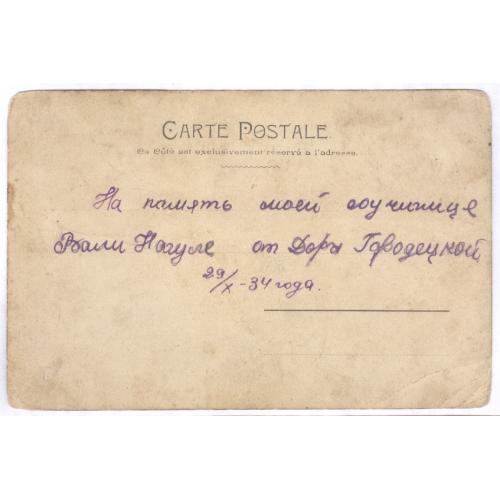 CARTE POSTALE
Ce Côté est exclusivement réservé a l'adresse.
На память моей соученице
Вали Нагуле от Доры Городецкой
29/X-34 года.